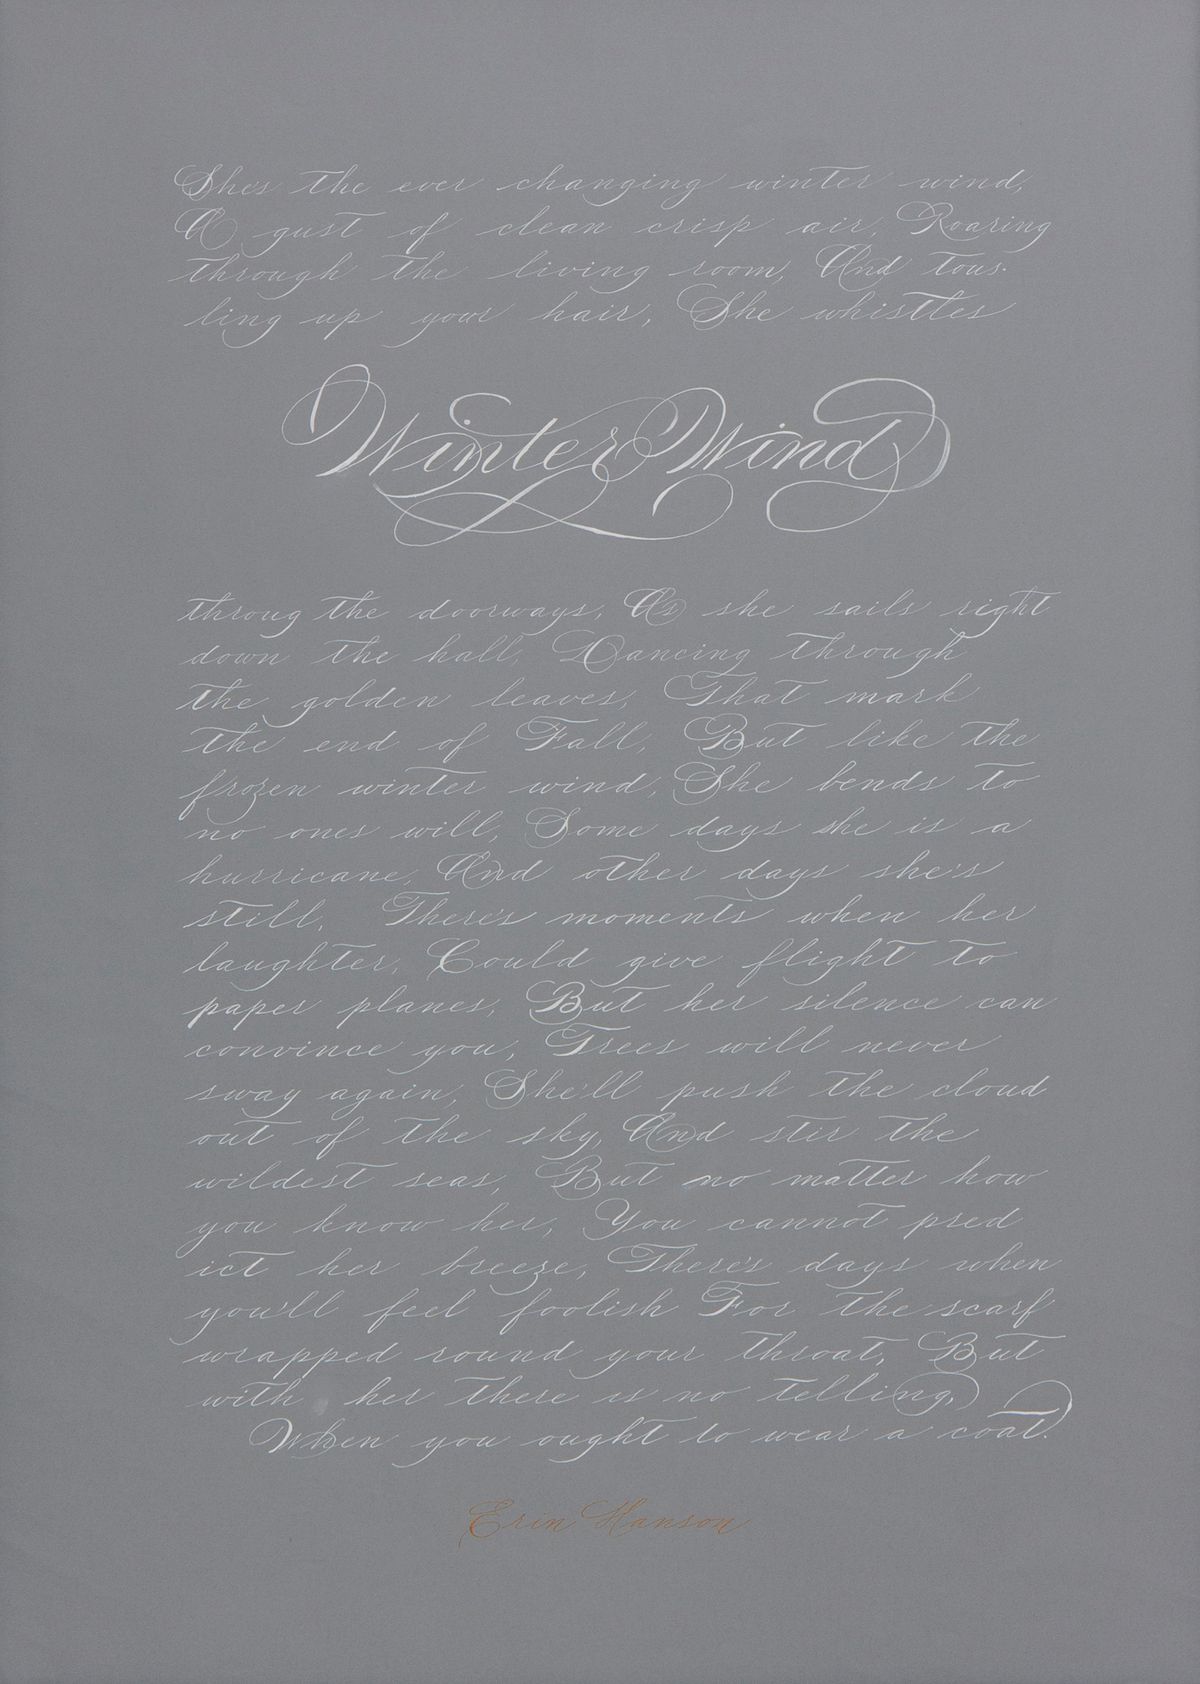 She's the ever changing winter wind,
A gust of clean crisp air, Roaring
through the living room, And tous-
ling up your hair, She whistles
Winter Wind
throug the doorways, As she sails right
down the hall, Dancing through
the golden leaves, That mark
the end of Fall, But like the
frozen winter wind, She bends to
no ones will, Some days she is a
hurricane, And other days she's
still, There's moments when her
laughter, Could give flight to
paper planes, But her silence can
convince you, Trees will never
sway again, She'll push the cloud
out of the sky, And stir the
wildest seas, But no matter how
you know her, You cannot pred
ict her breeze, There's days when
you'll feel foolish For the scarf
wrapped round your throat, But
with her there is no telling,
When you ought to wear a coat.
Erin Hanson